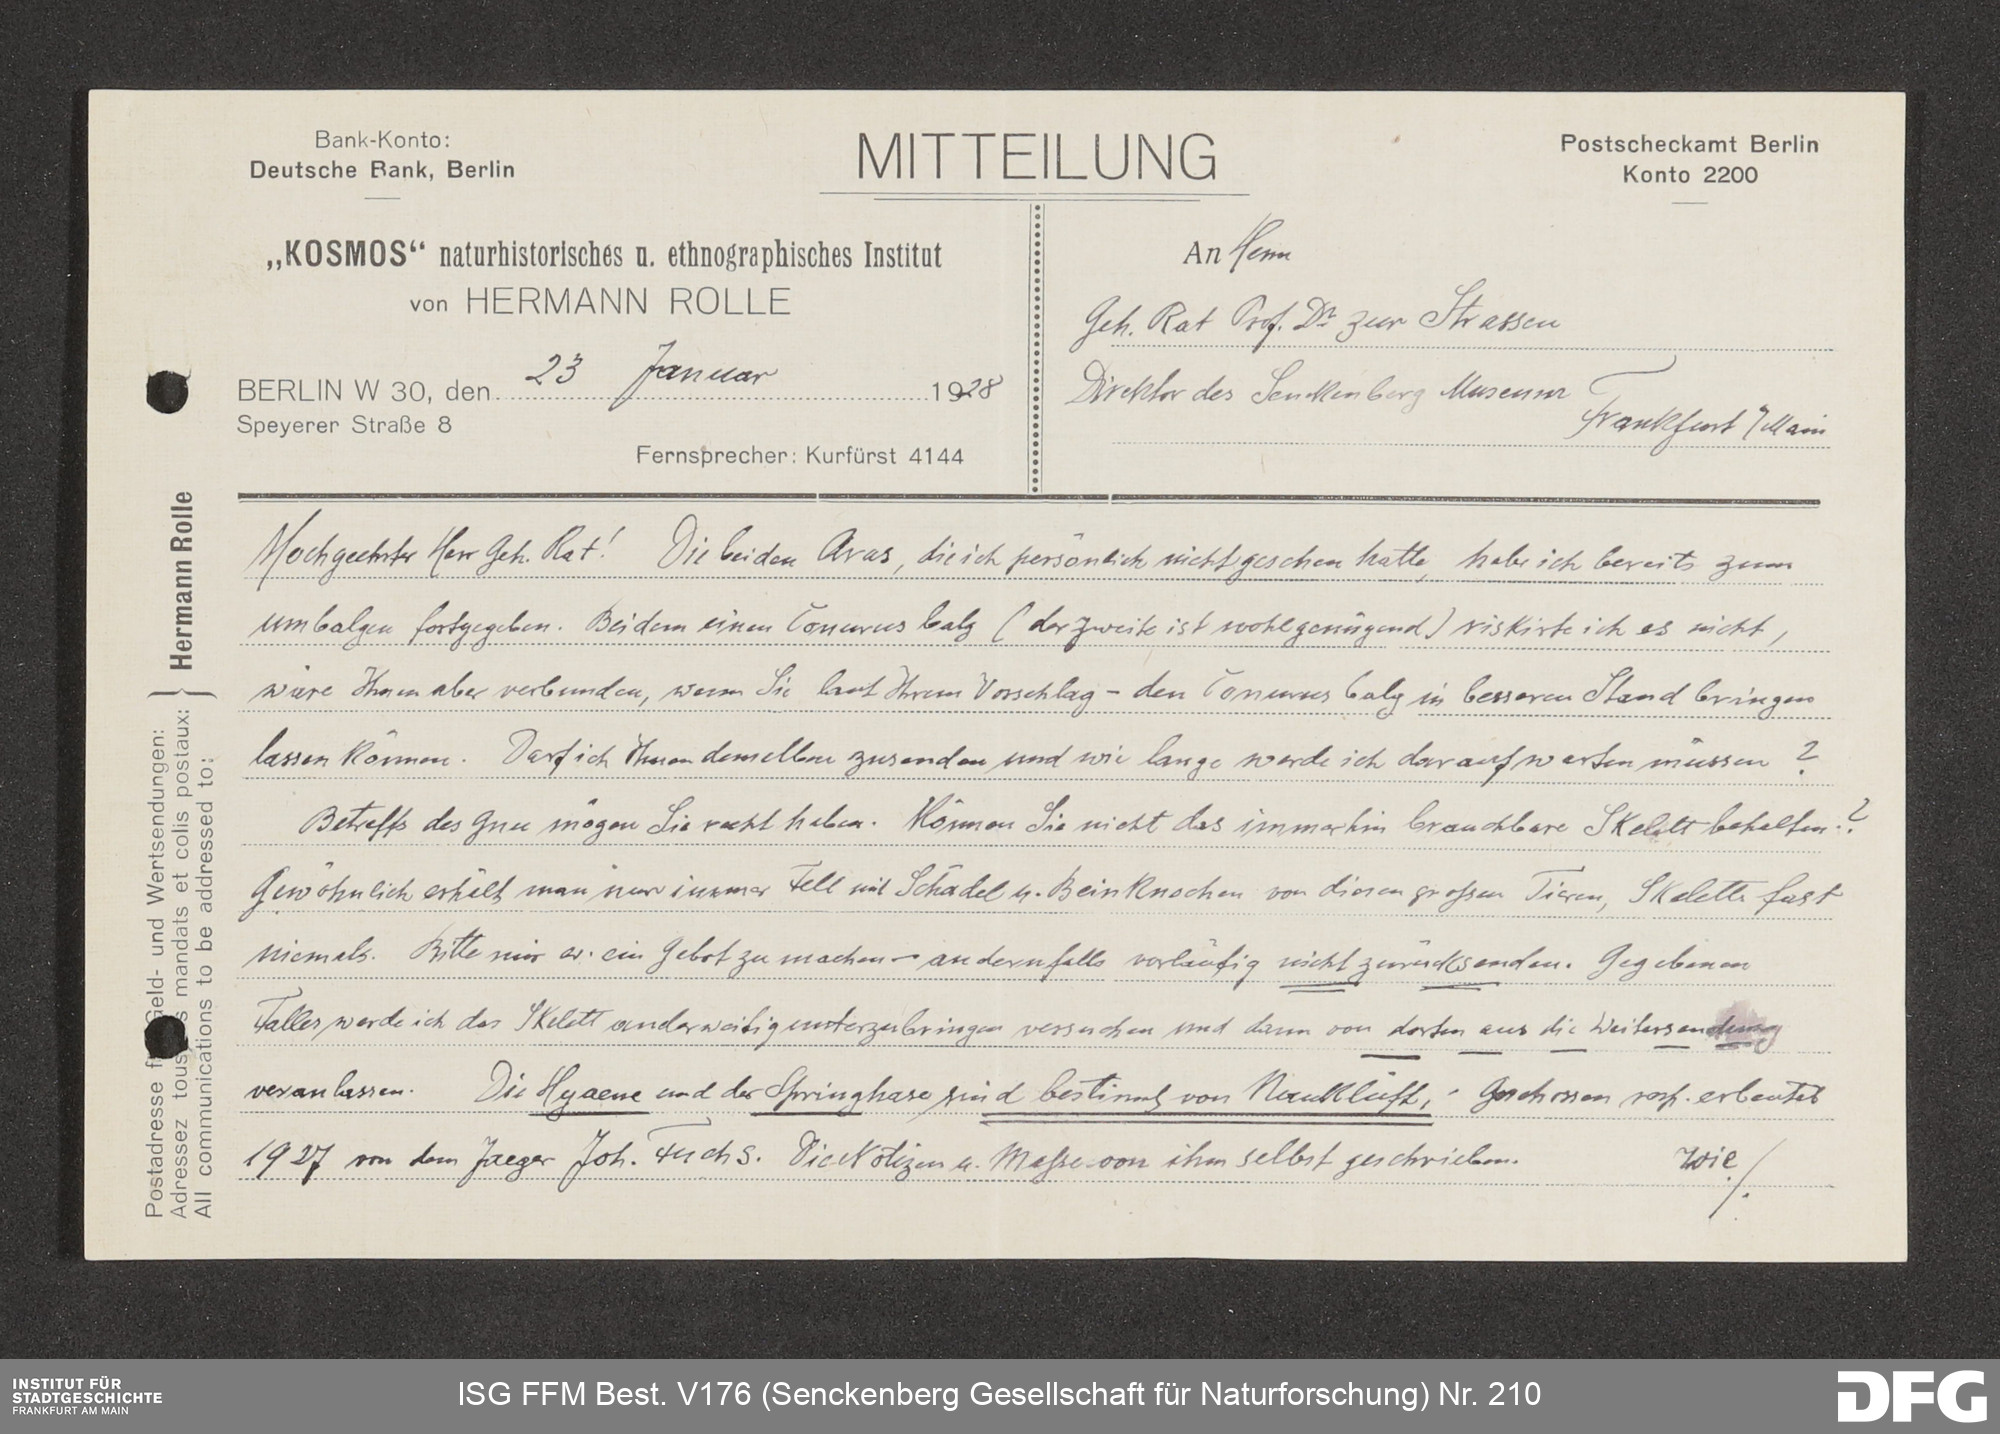 Bank-Konto:
Deutsche Bank, Berlin
MITTEILUNG
Postscheckamt Berlin
Konto 2200
„KOSMOS“ naturhistorisches u. ethnographisches Institut
von HERMANN ROLLE
BERLIN W 30, den 23 Januar 1928
Speyerer Straße 8
Fernsprecher: Kurfürst 4144
An Herrn
Geh. Rat Prof. Dr zur Strassen
Direktor des Senckenberg Museums
Frankfurt /Main
Postadresse für Geld- und Wertsendungen:
Adressez tous les mandats et colis postaux:
All communications to be addressed to:
Hermann Rolle
Hochgeehrter Herr Geh. Rat! Die beiden Aras, die ich persönlich nicht gesehen hatte, habe ich bereits zum
umbalgen fortgegeben. Bei dem einen Conurus balg (der zweite ist wohl genügend) riskirte ich es nicht,
wäre Ihnen aber verbunden, wenn Sie laut Ihrem Vorschlag – den Conurus balg in besseren Stand bringen
lassen können. Darf ich Ihnen denselben zusenden und wie lange werde ich darauf warten müssen?
Betreffs des Gnu mögen Sie recht haben. Können Sie nicht das immerhin brauchbare Skelett behalten.?
Gewöhnlich erhält man nur immer Fell mit Schädel u. Beinknochen von diesen grossen Tieren, Skelette fast
niemals. Bitte mir ev. ein Gebot zu machen – andernfalls vorläufig nicht zurücksenden. Gegebenen
Falles werde ich das Skelett anderweitig unterzubringen versuchen und dann von dorten aus die Weitersendung
veranlassen. Die Hyaene und der Springhase sind bestimmt von Naukluft, Geschossen resp. erbeutet
1927 von dem Jaeger Joh. Fuchs. Die Notizen u. Masse von ihm selbst geschrieben. Wie /.
INSTITUT FÜR
STADTGESCHICHTE
FRANKFURT AM MAIN
ISG FFM Best. V176 (Senckenberg Gesellschaft für Naturforschung) Nr. 210
DFG